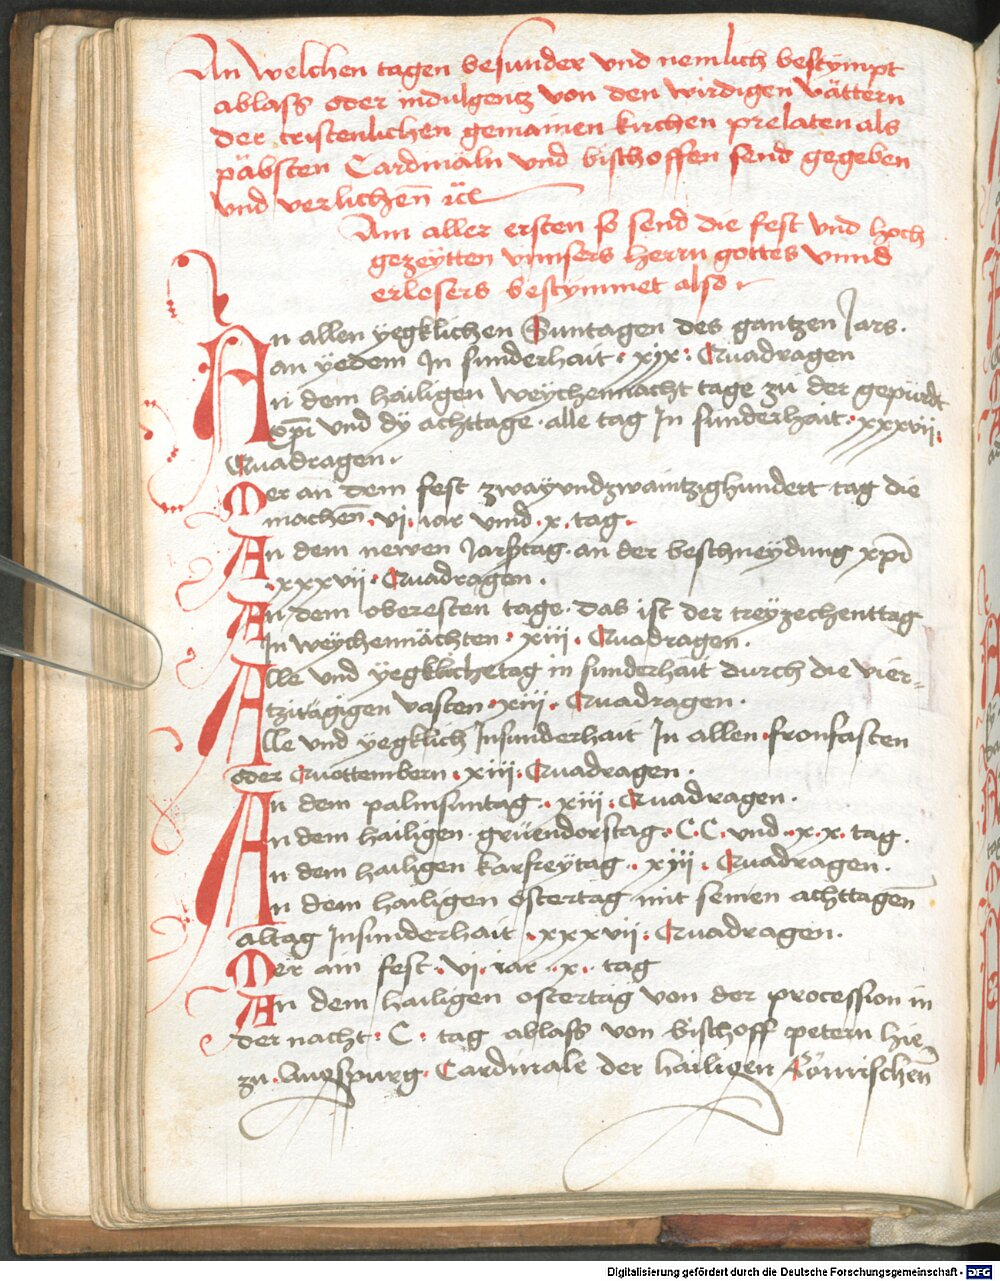 An welchen tagen besunder vnd nemlich bestympt
ablasß oder indulgentz von den wirdigen vättern
der cristenlichen gemainen kirchen prelaten als
päbsten Cardinäln vnd bischoffen send gegeben
vnd verlichen̄ ꝛc̄
Am aller ersten so send die fest vnd hoch
gezeytten vnnsers herrn gottes vnnd
erlosers bestymmet also
An allen yegklichen Suntagen des gantzen Jars.
an yedem In sunderhait · xix · Quadragen
An dem hailigen weychennacht tage zu der gepurdt
xp̄i vnd dy achttage · alle tag In sunderhait · xxxvii ·
Quadragen ·
Mer an dem fest zwayvndzwaintzighundert tag die
machen̄ · vi · iar vnnd · x · tag ·
An dem newen Jarstag · an der beschneydung xp̄i
· xxxvii · Quadragen ·
An dem oberesten tage · das ist der treyzechenttag
In weychennächten · xiii · Quadragen ·
Alle vnd yegkliche tag in sunderhait durch die vier-
tzitägigen vasten · xiii · Quadragen ·
Alle vnd yegklich Insunderhait In allen fronfasten
oder Quottembern · xiii · Quadragen ·
An dem palmsuntag · xiii · Quadragen ·
An dem hailigen grüendorstag · C · C · vnd · x · x · tag ·
An dem hailigen karfreytag · xiii · Quadragen ·
An dem hailigen ostertag mit seinen achttagen̄
altag Insunderhait · xxxvii · Quadragen ·
Mer am fest · vi · iar · x · tag
An dem hailigen ostertag von der procession in
der nacht · C · tag ablasß von bischoff petern hie
zu Augspurg · Cardinale der hailigen Römischen̄
Digitalisierung gefördert durch die Deutsche Forschungsgemeinschaft - DFG